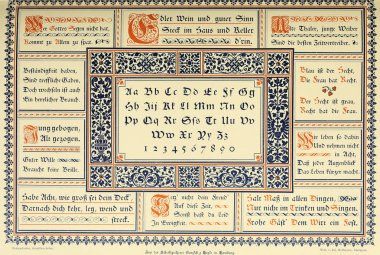 Wem Gottes Segen nicht hat,
Kommt zu Allem zu spat.
Edler Wein und guter Sinn
Steck im Haus und Keller
d'rin.
Alte Thaler, junge Weiber
Sind die besten Zeitvertreiber.
Beständigkeit haben,
Sind treffliche Gaben,
Doch wechsſeln iſt auch
Ein herrlicher Brauch.
Aa Bb Cc Dd Ee Ff Gg
Hh Ii Jj Kk Ll Mm Nn Oo
Pp Qq Rr Sſs Tt Uu Vv
Ww Xx Yy Zz
1 2 3 4 5 6 7 8 9 0
Blau ist der Hecht,
Die Frau hat Recht.
Der Hecht ist grau,
Recht hat die Frau.
Jung gebogen,
Alt gezogen.
Guter Wille
Braucht keine Brille.
Wir leben so dahin
Und nehmen nicht
in Acht,
Daß jeder Augenblick
Das Leben kürzer macht.
Habe Acht, wie groß sei dein Deck
Darnach dich kehr, leg, wend und
streck.
Auf diese Zeit,
In Ewigkeit.
Halt Maß in allen Dingen,
Nur nicht im Trinken und Singen.
Frohe Gäst' Dem Wirt ein Fest.